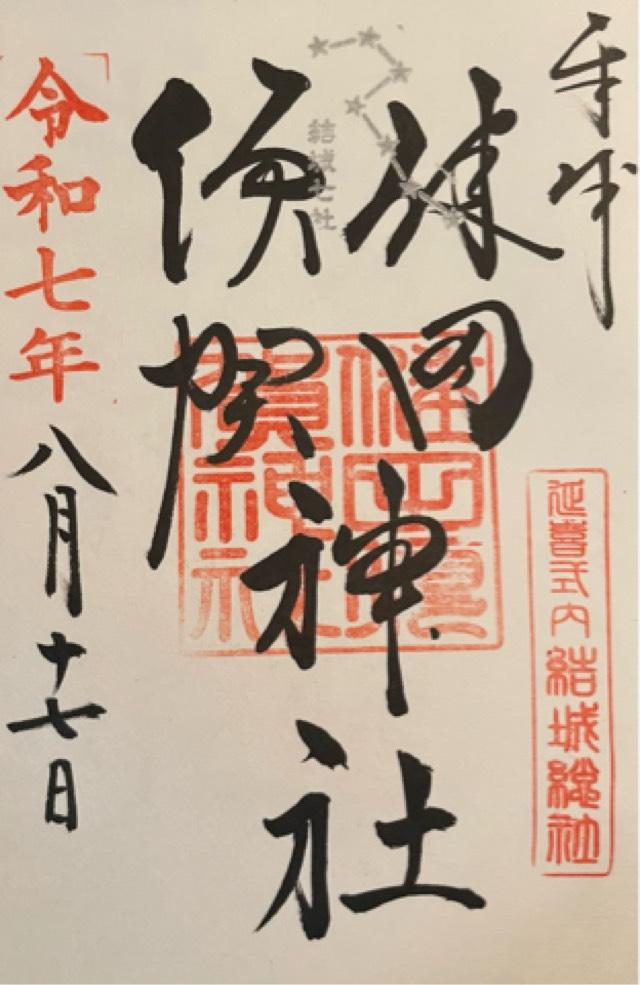 奉拝
延喜式内結城總社
健田
須賀
神社
健田須
賀神社
結城七社
令和七年八月十七日